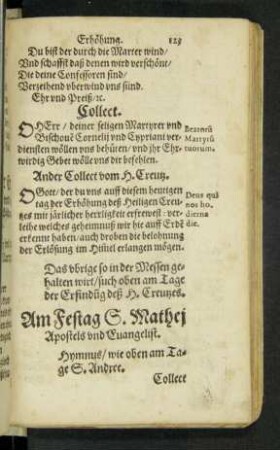 Erhöhung. 123
Du bist der durch die Marter wind/
Vnd schaffst daß denen wird verschöne/
Die deine Confessoren sind/
Verzeihend vberwind vns sünd.
Ehr vnd Preiß/ ꝛc.
Collect.
O HErr / deiner seligen Martyrer vnd
Bischouē Cornelij vnd Cypriani ver-
diensten wöllen vns behüten/ vnd jhr Ehr-
wirdig Gebet wölle vns dir befehlen.
Beatorū
Martyrū
tuorum.
Ander Collect vom H. Creutz.
O Gott/ der du vns auff diesem heutigen
tag der Erhöhung deß Heiligen Creu-
tzes mit järlicher herrligkeit erfrewest: ver-
leihe welches geheimnuß wir hie auff Erdē
erkennt haben/ auch droben die belohnung
der Erlösung im Himel erlangen mögen.
Deus qui
nos ho-
dierna
die.
Das vbrige so in der Messen ge-
halten wirt/ such oben am Tage
der Erfindūg deß H. Creutzes.
Am Festag S. Mathej
Apostels vnd Euangelist.
Hymnus/ wie oben am Ta-
ge S. Andree.
Collect